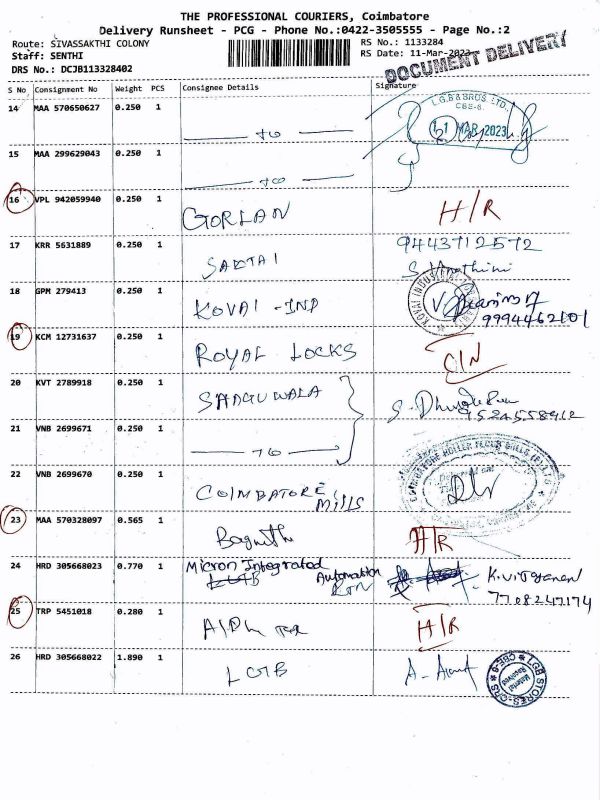 THE PROFESSIONAL COURIERS, Coimbatore
Delivery Runsheet - PCG - Phone No.:0422-3505555 - Page No.:2
Route: SIVASSAKTHI COLONY RS No.: 1133284
Staff: SENTHI RS Date: 11-Mar-2023
DRS No.: DCJB113328402
DOCUMENT DELIVERY
S No Consignment No Weight PCS Consignee Details Signature
14 MAA 570650627 0.250 1
L.G.B & BROS. LTD.,
CBE-6.
MAR 2023
15 MAA 299629043 0.250 1
16 VPL 942059940 0.250 1 GORLAN H/R
17 KRR 5631889 0.250 1 SAKTAI 9443712572
18 GPM 279413 0.250 1 KOVAI -IND
9994462101
19 KCM 12731637 0.250 1 ROYAL LOCKS
20 KVT 2789918 0.250 1 SADGUWALA
9524558912
21 VNB 2699671 0.250 1
22 VNB 2699670 0.250 1 COIMBATORE MILLS
COIMBATORE ROLLER FLOUR MILLS
23 MAA 570328097 0.565 1 H/R
24 HRD 305668023 0.770 1 Micron Integrated Automation
7708247174
25 TRP 5451018 0.280 1 H/R
26 HRD 305668022 1.890 1 LGB
LGB STORES-CRS CBE-6
Material Received